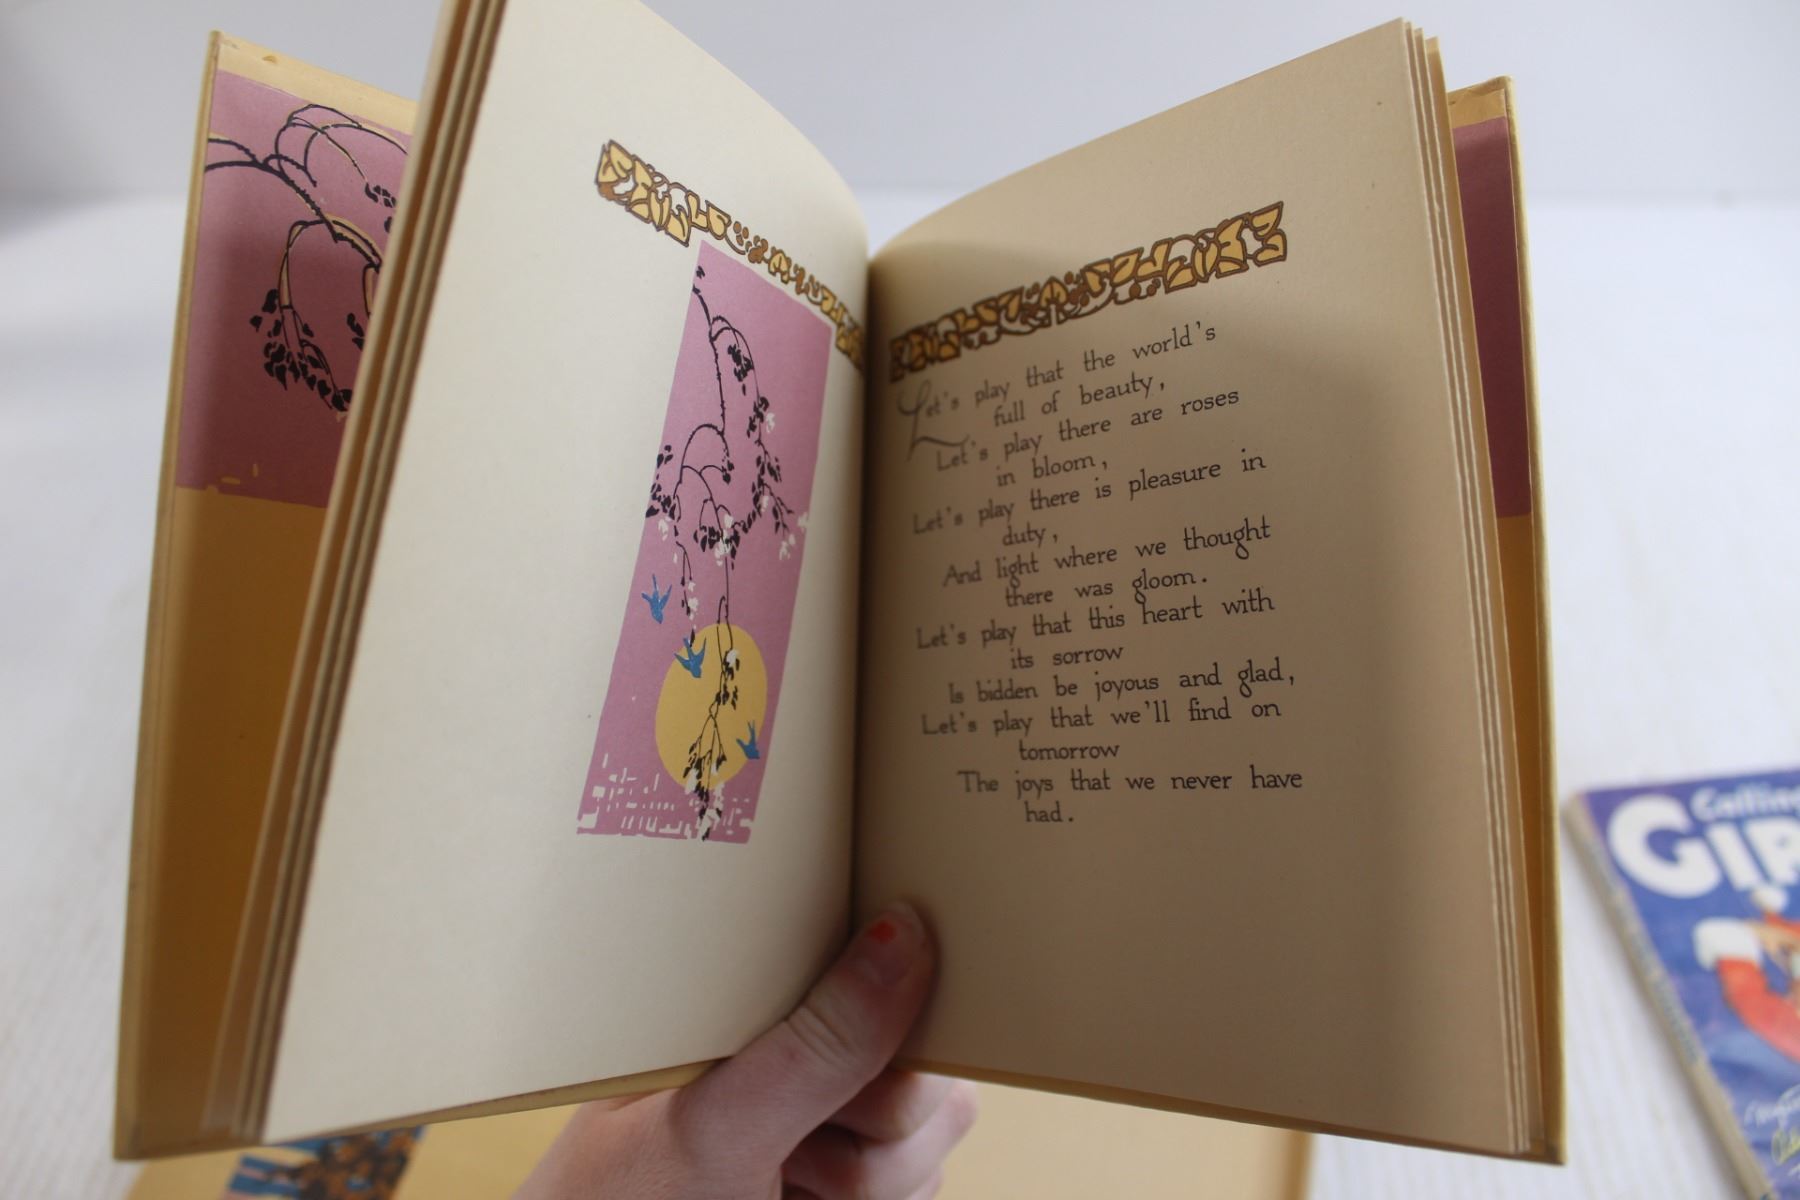 Let's play that the world's
full of beauty,
Let's play there are roses
in bloom,
Let's play there is pleasure in
duty,
And light where we thought
there was gloom.
Let's play that this heart with
its sorrow
Is bidden be joyous and glad,
Let's play that we'll find on
tomorrow
The joys that we never have
had.
Calling